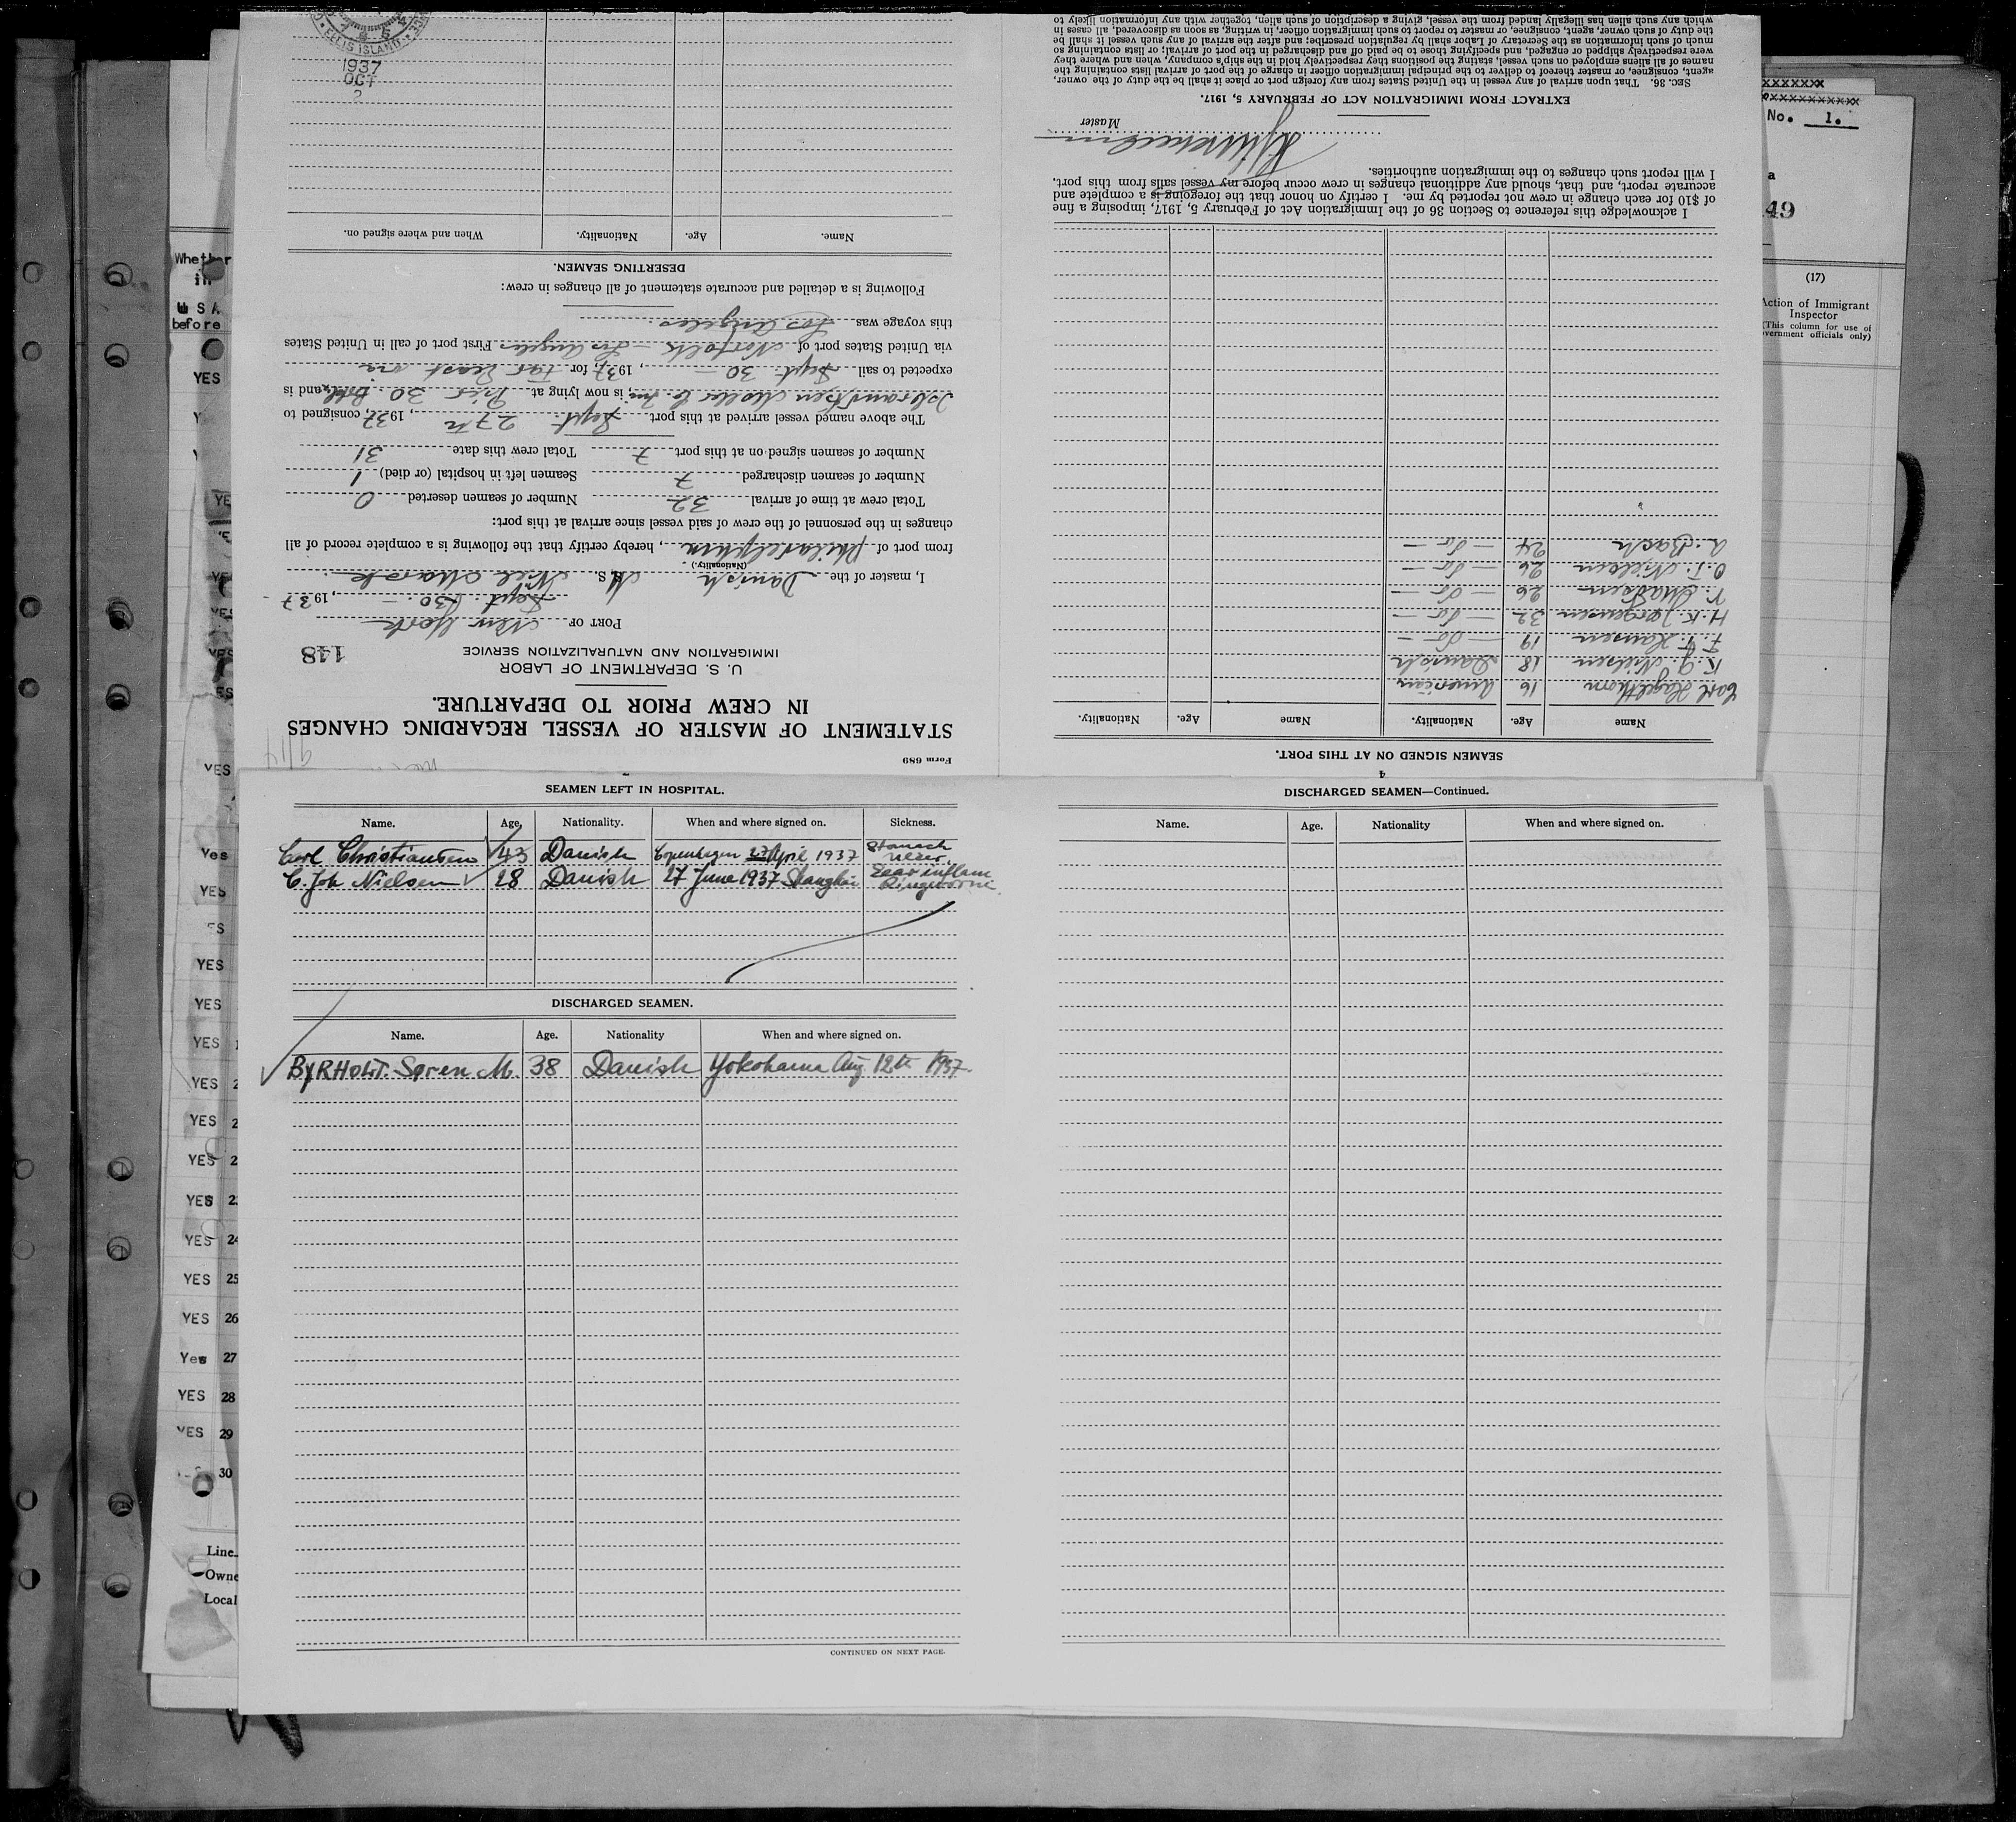 Form 689
STATEMENT OF MASTER OF VESSEL REGARDING CHANGES
IN CREW PRIOR TO DEPARTURE.
U. S. DEPARTMENT OF LABOR
IMMIGRATION AND NATURALIZATION SERVICE
148
PORT OF New York
Sept. 30. , 1937
I, master of the Danish M S. Niel Maersk
(Nationality.)
from port of Philadelphia , hereby certify that the following is a complete record of all
changes in the personnel of the crew of said vessel since arrival at this port:
Total crew at time of arrival 32 Number of seamen deserted 0
Number of seamen discharged 7 Seamen left in hospital (or died) 1
Number of seamen signed on at this port 7 Total crew this date 31
The above named vessel arrived at this port Sept. 27th , 1937, consigned to
Isbrandtsen Moller Co. Inc, is now lying at Pier 30 Bkl, and is
expected to sail Sept 30 , 1937, for Far East via
via United States port of Norfolk - Los Angeles First port of call in United States
this voyage was Los Angeles.
Following is a detailed and accurate statement of all changes in crew:
DESERTING SEAMEN.
Name. Age. Nationality. When and where signed on.
ELLIS ISLAND
1937
OCT
2
4
SEAMEN SIGNED ON AT THIS PORT.
Name Age. Nationality. Name Age. Nationality.
Carl Hagelthorn 16 American
K. J. Nielsen 18 Danish
F. F. Hansen 19 - do -
H. K. Jørgensen 32 - do -
V. Madsen 26 - do -
O. T. Nielsen 26 - do -
A. Bach 24 - do -
I acknowledge this reference to Section 36 of the Immigration Act of February 5, 1917, imposing a fine
of $10 for each change in crew not reported by me. I certify on honor that the foregoing is a complete and
accurate report, and that, should any additional changes in crew occur before my vessel sails from this port,
I will report such changes to the immigration authorities.
Master
EXTRACT FROM IMMIGRATION ACT OF FEBRUARY 5, 1917.
SEC. 36. That upon arrival of any vessel in the United States from any foreign port or place it shall be the duty of the owner,
agent, consignee, or master thereof to deliver to the principal immigration officer in charge of the port of arrival lists containing the
names of all aliens employed on such vessel, stating the positions they respectively hold in the ship's company, when and where they
were respectively shipped or engaged, and specifying those to be paid off and discharged in the port of arrival; or lists containing so
much of such information as the Secretary of Labor shall by regulation prescribe; and after the arrival of any such vessel it shall be
the duty of such owner, agent, consignee, or master to report to such immigration officer, in writing, as soon as discovered, all cases in
which any such alien has illegally landed from the vessel, giving a description of such alien, together with any information likely to
SEAMEN LEFT IN HOSPITAL.
Name. Age. Nationality. When and where signed on. Sickness.
Carl Christiansen 43 Danish Copenhagen 27 April 1937 Stomach ulcer.
C. Joh Nielsen 28 Danish 27 June 1937 Shanghai Eear inflam Ringworm
DISCHARGED SEAMEN.
Name. Age. Nationality When and where signed on.
BYRHOLT. Søren M. 38 Danish Yokohama Aug 12th 1937.
CONTINUED ON NEXT PAGE.
DISCHARGED SEAMEN—Continued.
Name. Age. Nationality When and where signed on.
Whether
in
U S A
before
YES
YES
YES
YES
Yes
YES
YES
YES
YES
YES
YES
YES
YES
YES 24
YES 25
YES 26
Yes 27
YES 28
YES 29
30
Line
Owne
Local
xxxxxx
xxxxxxxxxx
No. 1.
a
49
(17)
Action of Immigrant
Inspector
(This column for use of
government officials only)